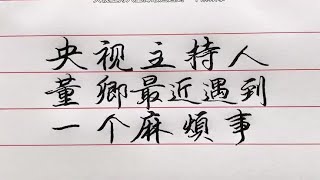 央视主持人
董卿最近遇到
一个麻煩事